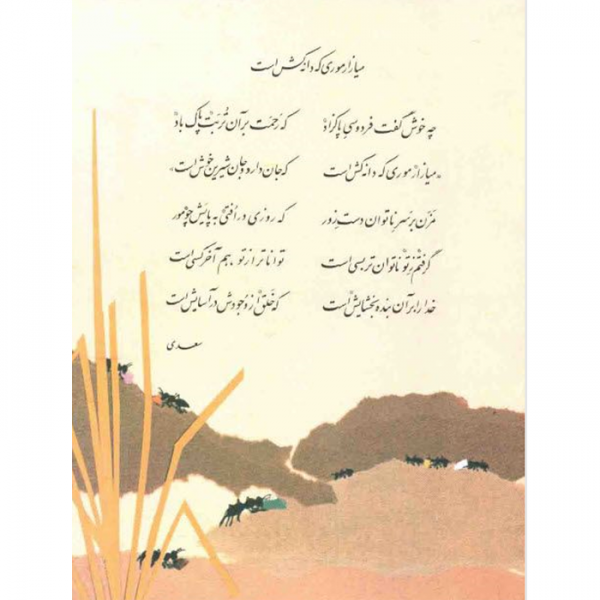 میازار موری که دانه کش است
چه خوش گفت فردوسی پاکزاد که رحمت بر آن تُربت پاک باد
«میازار موری که دانه کش است که جان دارد و جان شیرین خوش است»
مزن بر سر ناتوان دست زور که روزی در اُفتی به پایش چو مور
گرفتم ز تو ناتوان تر بسی است تواناتر از تو هم آخر کسی است
خدا را بر آن بنده بخشایش است که خَلق از وجودش در آسایش است
سعدی